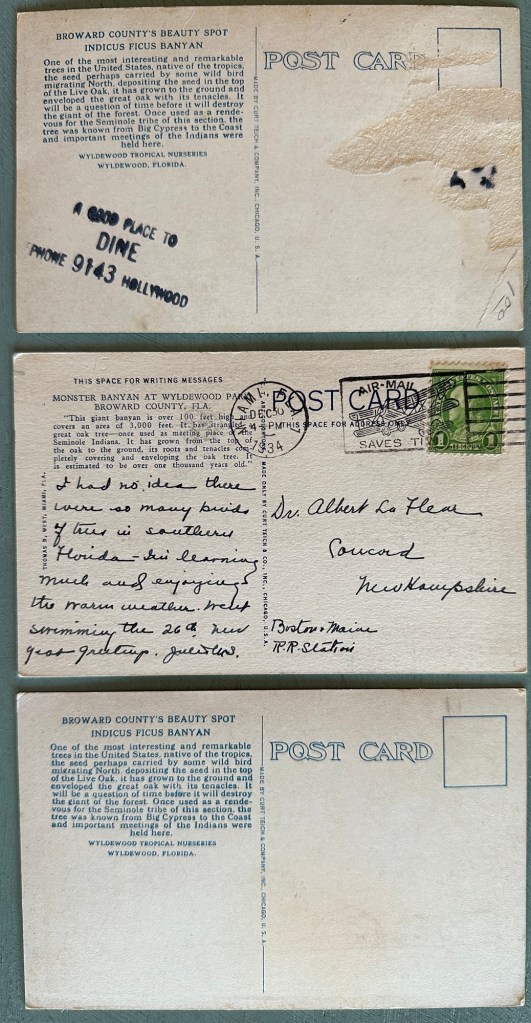 BROWARD COUNTY'S BEAUTY SPOT
INDICUS FICUS BANYAN
One of the most interesting and remarkable
trees in the United States, native of the tropics,
the seed perhaps carried by some wild bird
migrating North, depositing the seed in the top
of the Live Oak, it has grown to the ground and
enveloped the great oak with its tenacles. It
will be a question of time before it will destroy
the giant of the forest. Once used as a rende-
vous for the Seminole tribe of this section, the
tree was known from Big Cypress to the Coast
and important meetings of the Indians were
held here.
WYLDEWOOD TROPICAL NURSERIES
WYLDEWOOD, FLORIDA.
A GOOD PLACE TO
DINE
PHONE 9143 HOLLYWOOD
MADE BY CURT TEICH & COMPANY, INC., CHICAGO, U. S. A.
POST CARD
100
THIS SPACE FOR WRITING MESSAGES
MONSTER BANYAN AT WYLDEWOOD PARK
BROWARD COUNTY, FLA.
"This giant banyan is over 100 feet high and
covers an area of 3,000 feet. It has strangled
great oak tree—once used as meeting place of the
Seminole Indians. It has grown from the top of
the oak to the ground, its roots and tenacles com-
pletely covering and enveloping the oak tree. It
is estimated to be over one thousand years old."
THOMAS B. WEST, MIAMI, FLA.
I had no idea there
were so many kinds
of trees in southern
Florida - I'm learning
much and enjoying
the warm weather. Went
swimming the 26th. New
Year Greetings.
MADE ONLY BY CURT TEICH & CO., INC., CHICAGO, U.S.A.
MIAMI, FLA.
DEC 30
4 PM
1934
POST CARD
THIS SPACE FOR ADDRESS ONLY
AIR-MAIL
SAVES TIME
1 1
Dr. Albert La Fleur
Concord
New Hampshire
Boston & Maine
R.R. Station
BROWARD COUNTY'S BEAUTY SPOT
INDICUS FICUS BANYAN
One of the most interesting and remarkable
trees in the United States, native of the tropics,
the seed perhaps carried by some wild bird
migrating North, depositing the seed in the top
of the Live Oak, it has grown to the ground and
enveloped the great oak with its tenacles. It
will be a question of time before it will destroy
the giant of the forest. Once used as a rende-
vous for the Seminole tribe of this section, the
tree was known from Big Cypress to the Coast
and important meetings of the Indians were
held here.
WYLDEWOOD TROPICAL NURSERIES
WYLDEWOOD, FLORIDA.
MADE BY CURT TEICH & COMPANY, INC., CHICAGO, U. S. A.
POST CARD